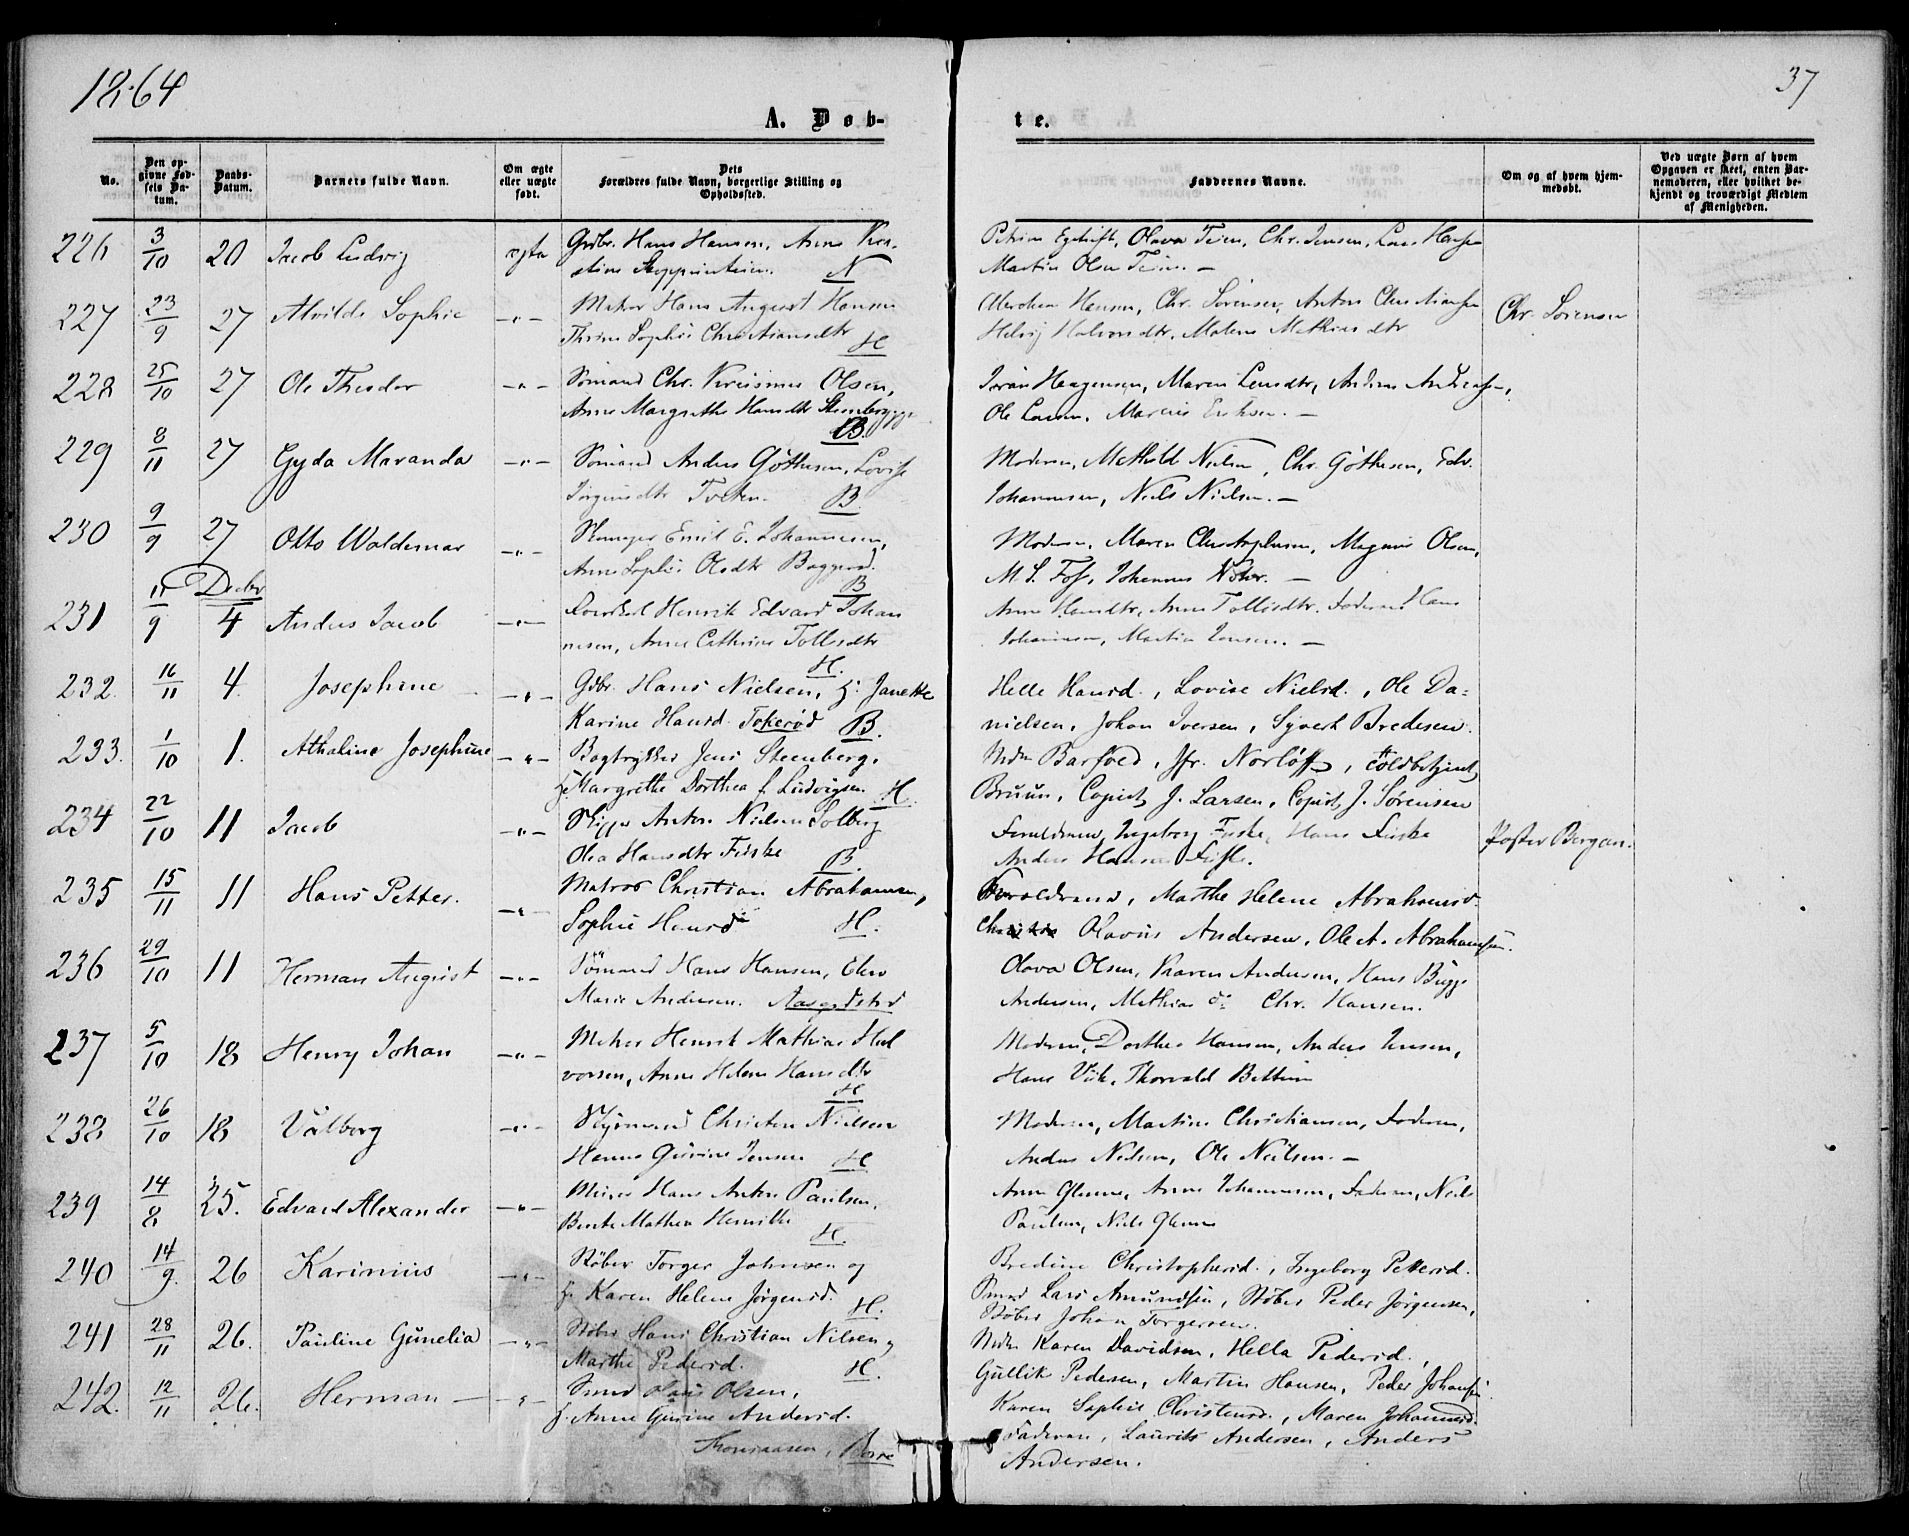 1864
37
A. Døb-
te.
No.
Den opgivne Fødsels Datum.
Daabs-Datum.
Barnets fulde Navn.
Om ægte eller uægte født.
Dets Forældres fulde Navn, borgerlige Stilling og Opholdssted.
Faddernes Navne.
Om og af hvem hjemmedøbt.
Ved uægte Børn af hvem Opgaven er skeet, enten Barnemoderen, eller hvilket bekjendt og troværdigt Medlem af Menigheden.
226 3/10 20 Jacob Ludvig ægte Grdbr. Hans Hansen, Anne
N
Chr. Jensen,
Martin Olsen
227 23/9 27 Alvilde Sophie -"- Matros Hans August Hansen
Thrine Sophie Christiansdtr H
Hansen, Chr. Sørensen, Anton Christiansen Chr. Sørensen
Helvig Halvorsdtr, Malene Mathiasdtr
228 25/10 27 Ole Theodor -"- Sömand Chr. Olsen,
Anne Margrethe Hansdtr
B.
Haagensen, Maren Larsdtr,
Ole Larsen, Marius Eriksen. -
229 8/11 27 Gyda Maranda -"- Sömand Anders Göthesen, Lovise
Jörgensdtr B
Moderen, Methilde Nielsen, Chr. Göthesen, Edv.
Johannesen, Niels Nielsen. -
230 9/9 27 Otto Waldemar -"- Emil E. Johannesen,
Anne Sophie Olsdtr
B
Moderen, Maren Christophersen, Magnus Olsen,
M. S. Foss, Johannes
Decbr
231 11/9 4 Anders Jacob -"- Henrik Edvard Johan
nesen, Anne Cathrine Tollefsdtr
H.
Anne Hansdtr, Anne Tollefsdtr, Faderen, Hans
Johannesen, Martin Jensen. -
232. 16/11 4. Josephine -"- Gdbr. Hans Nielsen, h: Janette
Karine Hansd. Tokerød B.
Helle Hansd., Lovise Nielsd., Ole Da=
nielsen, Johan Iversen, Syvert Bredesen.
233. 1/10 1. Athaline Josephine -"- Bogtrykker Jens Steenberg,
h: Margrethe Dorthea f. Ludvigsen H.
Mdm Barfoed, Jfr. Norløff, Toldbetjent
Bruun, Copist J. Larsen, Copist J. Sørensen
234 22/10 11 Jacob -"- Skipper Anton Nielsen Solberg
Olea Hansdtr Fuske B.
Forældrene, Ingeborg Fuske, Hans Fuske Pastor Bergan.
Anders Hansen
235 15/11 11 Hans Petter. -"- Matros Christian Abrahamsen,
Sophie Hansd H.
Forældrene, Marthe Helene Abrahamsd.
Olavus Andersen, Ole A. Abrahamsen.
236 29/10 11 Herman August -"- Sömand Hans Hansen,
Marie Andersen. Aasgrdstrd
Olava Olsen, Karen Andersen, Hans Bugge
Andersen, Mathias do Chr. Hansen.
237 5/10 18 Henry Johan -"- Matros Henrik Mathias Hal
vorsen, Anne Helene Hansdtr
H
Moderen, Dorthea Hansen, Anders Jensen,
Hans Viik, Thorvald Bettum
238 26/10 18 Valborg -"- Styrmand Christen Nielsen
Hanne Gurine Jensen H
Moderen, Martine Christiansen, Faderen,
Anders Nielsen, Ole Nielsen. -
239 14/8 25. Edvard Alexander -"- Murer Hans Anton Paulsen,
Bente Mathea
H.
Anne Glenne, Anne Johannesen, Faderen, Niels
Paulsen, Niels Glenne
240 14/9. 26 Karinius -"- Støber Torger Johnsen og
h: Karen Helene Jørgensd. H.
Bredine Christophersd., Ingeborg Pettersd.
Smed Lars Amundsen, Støber Peder Jørgensen,
Støber Johan Torgersen.
241 28/11 26. Pauline Gunelia -"- Støber Hans Christian Nilsen,
Marthe Pedersd. H.
Mdm Karen Davidsen, Hella Pedersd.,
Gullik Pedersen, Martin Hansen, Peder Johansen
242. 12/11 26. Herman - -"- Smed Olsen,
h. Anne Gurine Andersd.
Borre
Karen Sophie Christensd., Maren Johannesd.
Faderen, Laurits Andersen, Anders
Andersen.